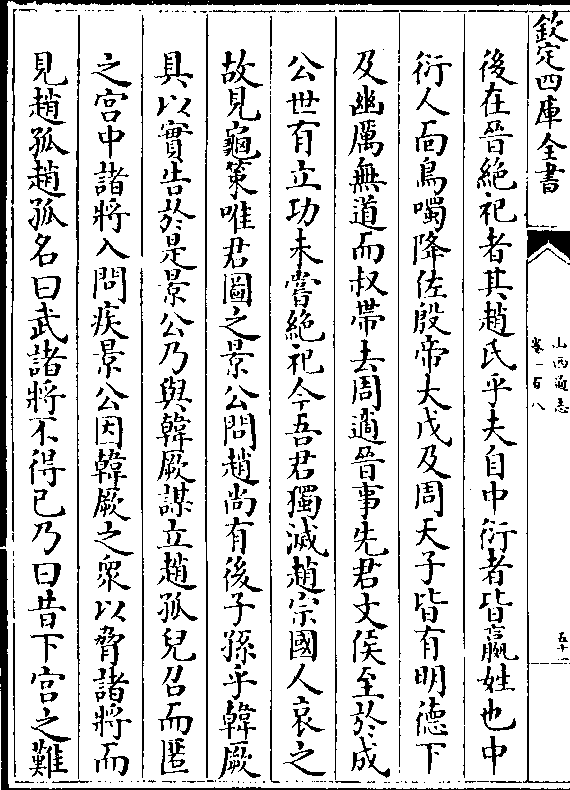 欽定四庫全書
山西通志
卷一百八
五十一
後在晉絶祀者其趙氏乎夫自中衍者皆嬴姓也中
衍人面鳥噣降佐殷帝大戊及周天子皆有明德下
及幽厲無道而叔帶去周適晉事先君文侯至於成
公世有立功未嘗絶祀今吾君獨滅趙宗國人哀之
故見龜策唯君圖之景公問趙尚有後子孫乎韓厥
具以實告於是景公乃與韓厥謀立趙孤兒召而匿
之宮中諸將入問疾景公因韓厥之衆以脅諸將而
見趙孤趙孤名曰武諸將不得已乃曰昔下宮之難